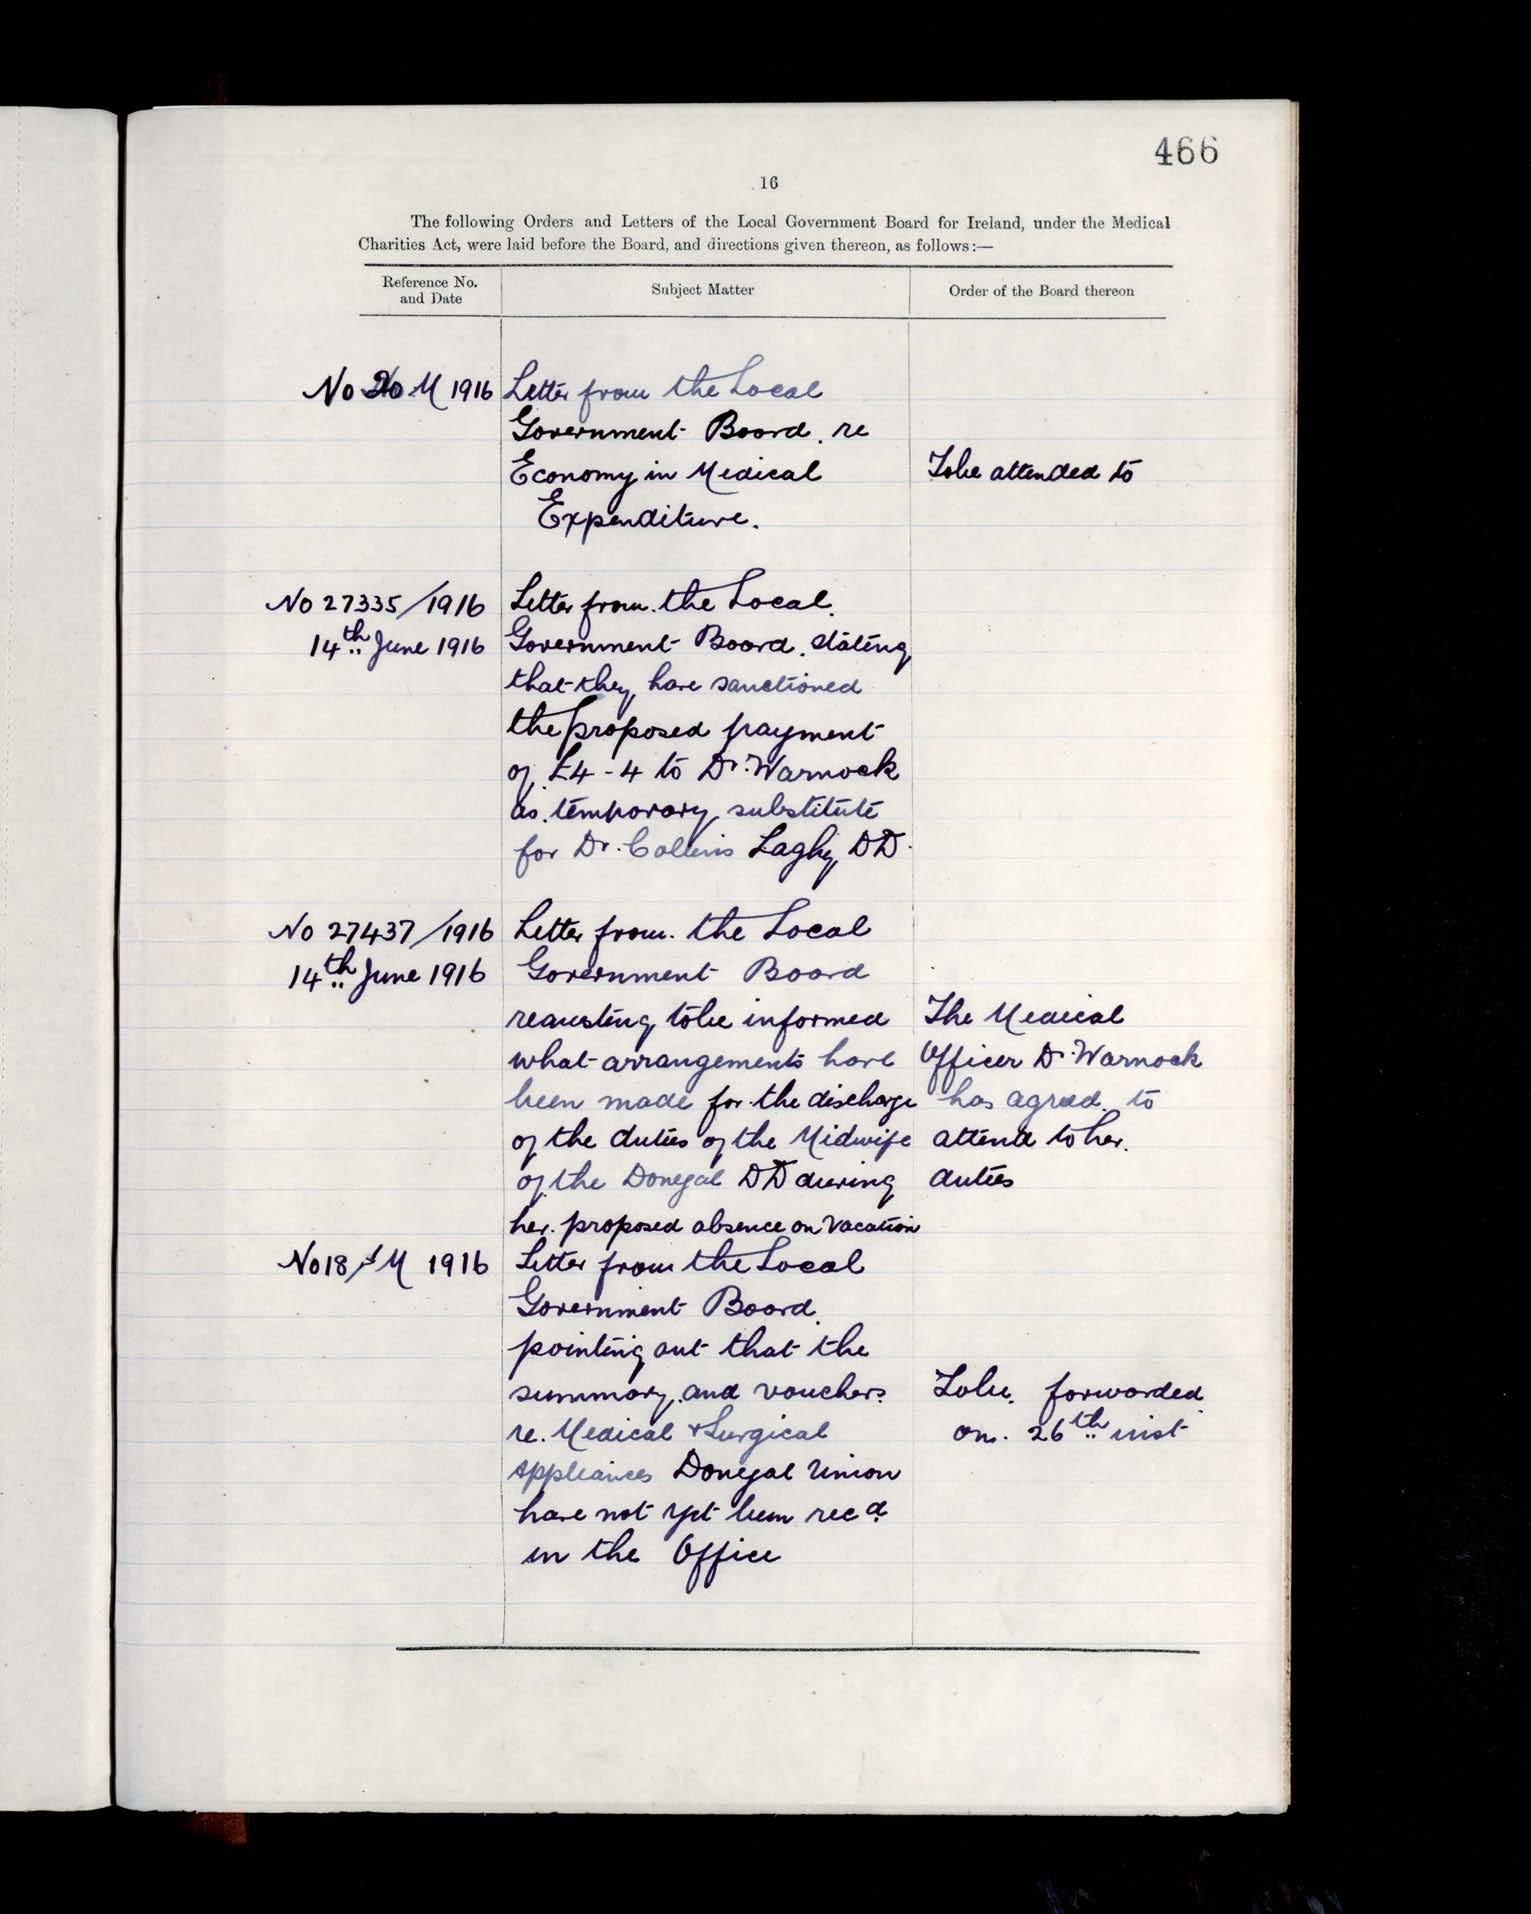 466
16
The following Orders and Letters of the Local Government Board for Ireland, under the Medical
Charities Act, were laid before the Board, and directions given thereon, as follows:—
Reference No.
and Date
Subject Matter
Order of the Board thereon
No 20 M 1916
Letter from the Local
Government Board. re
Economy in Medical
Expenditure.
To be attended to
No 27335/1916
14th June 1916
Letter from the Local
Government Board. stating
that they have sanctioned
the proposed payment
of £4-4 to Dr. Warnock
as temporary substitute
for Dr. Collins Laghy DD.
No 27437/1916
14th June 1916
Letter from the Local
Government Board
requesting to be informed
what arrangements have
been made for the discharge
of the duties of the Midwife
of the Donegal DD during
her proposed absence on vacation
The Medical
Officer Dr. Warnock
has agreed to
attend to her
duties
No 18 M 1916
Letter from the Local
Government Board
pointing out that the
summary and vouchers
re. Medical & Surgical
Appliances Donegal Union
have not yet been recd.
in the Office
To be forwarded
on 26th inst